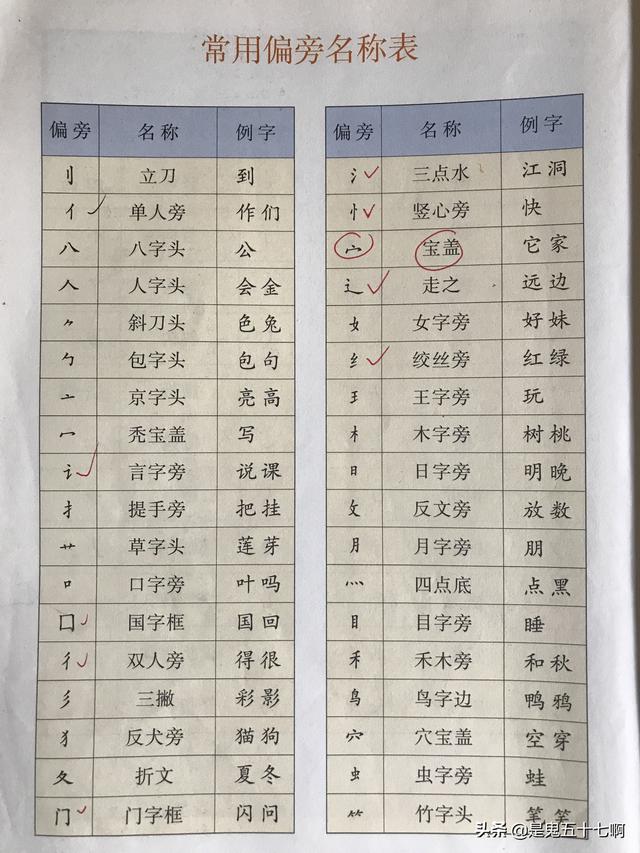 常用偏旁名称表
偏旁 名称 例字
刂 立刀 到
亻 单人旁 作 们
八 八字头 公
人 人字头 会 金
⺈ 斜刀头 色 兔
勹 包字头 包 句
亠 京字头 亮 高
冖 秃宝盖 写
讠 言字旁 说 课
扌 提手旁 把 挂
艹 草字头 莲 芽
口 口字旁 叶 吗
囗 国字框 国 回
彳 双人旁 得 很
彡 三撇 彩 影
犭 反犬旁 猫 狗
夂 折文 夏 冬
门 门字框 闪 问
偏旁 名称 例字
氵 三点水 江 洞
忄 竖心旁 快
宀 宝盖 它 家
辶 走之 远 边
女 女字旁 好 妹
纟 绞丝旁 红 绿
王 王字旁 玩
木 木字旁 树 桃
日 日字旁 明 晚
攵 反文旁 放 数
月 月字旁 朋
灬 四点底 点 黑
目 目字旁 睡
禾 禾木旁 和 秋
鸟 鸟字边 鸭 鸦
穴 穴宝盖 空 穿
虫 虫字旁 蛙
⺮ 竹字头 笔 笑
头条 @是鬼五十七啊